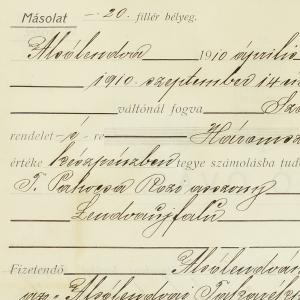 Másolat —20.- fillér bélyeg.
Alsólendva 1910 április
1910. szeptember 14-én
váltónál fogva
rendelet -é- re
értéke készpénzben tegye számolásba
T. Rozi asszony
Lendvaujfalu
Fizetendő Alsólendván
az Alsólendvai Takarék